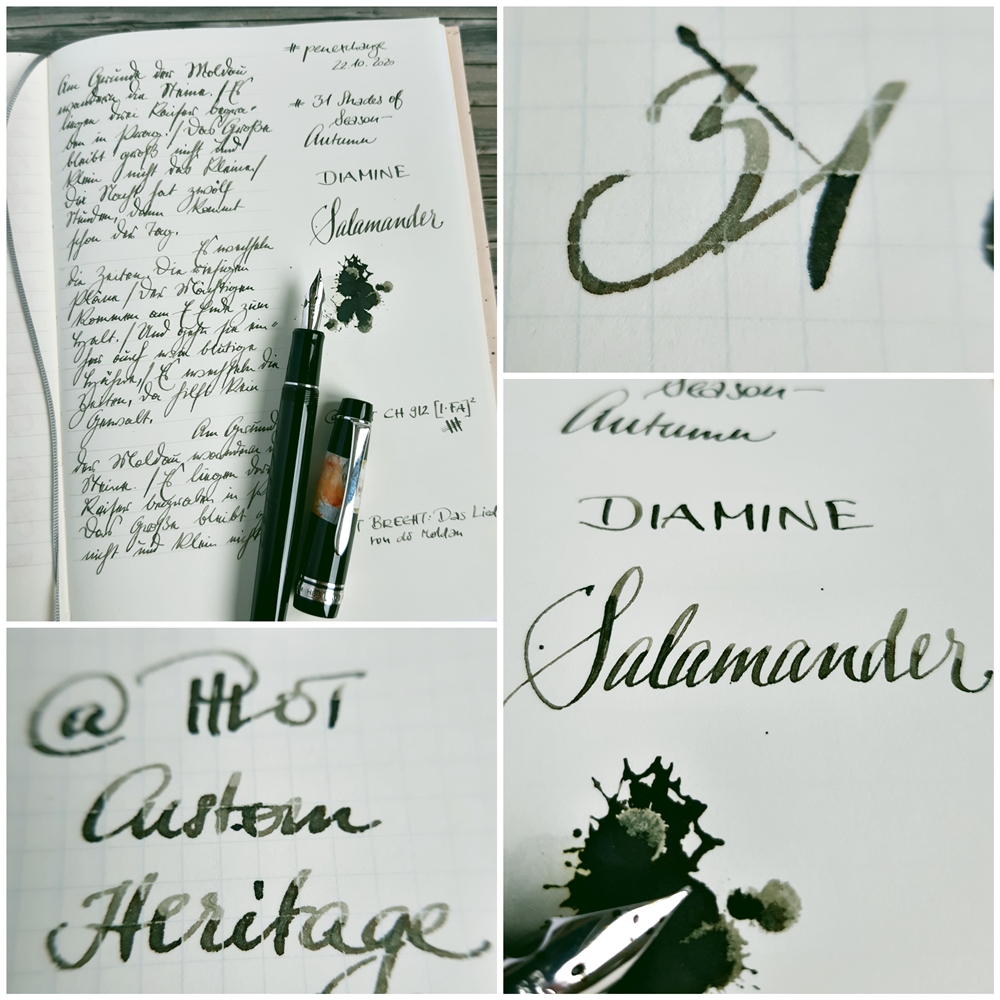 Am Grunde der Moldau
wandern die Steine. / Es
liegen drei Kaiser begra-
ben in Prag. / Das Große
bleibt groß nicht und
klein nicht das Kleine /
Die Nacht hat zwölf
Stunden, dann kommt
schon der Tag.
Es wechseln
die Zeiten. Die riesigen
Pläne / Der Mächtigen
kommen am Ende zum
Halt. / Und gehn sie ein-
her auch wie blutige
Hähne / Es wechseln die
Zeiten, da hilft kein
Gewalt.
Am Grund
der Moldau wandern
Steine. / Es liegen drei
Kaiser begraben in
Das Große bleibt
nicht und klein nicht
# penexchange
22.10.2020
# 31 Shades of
Season-
Autumn
DIAMINE
Salamander
CH 912 [1·FA]²
T BRECHT: Das Lied
von der Moldau
31
@ PILOT
Custom
Heritage
Season-
Autumn
DIAMINE
Salamander